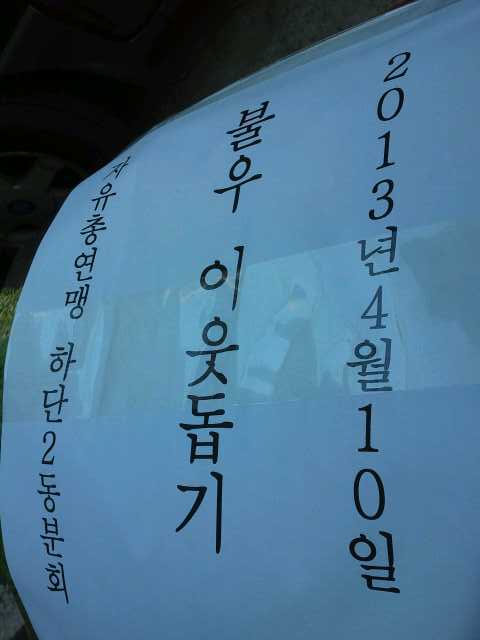 2013년4월10일
불우 이웃돕기
자유총연맹 하단2동분회